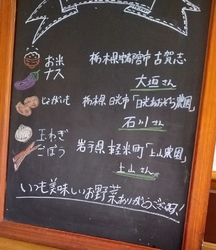 お米
ナス
栃木県宇都宮市 古賀志
大垣さん
じゃがいも
栃木県 日光市「日光あおぞら農園」
石川さん
玉ねぎ
ごぼう
岩手県 軽米町「上山農園」
上山さん
いつも美味しいお野菜ありがとうございます！